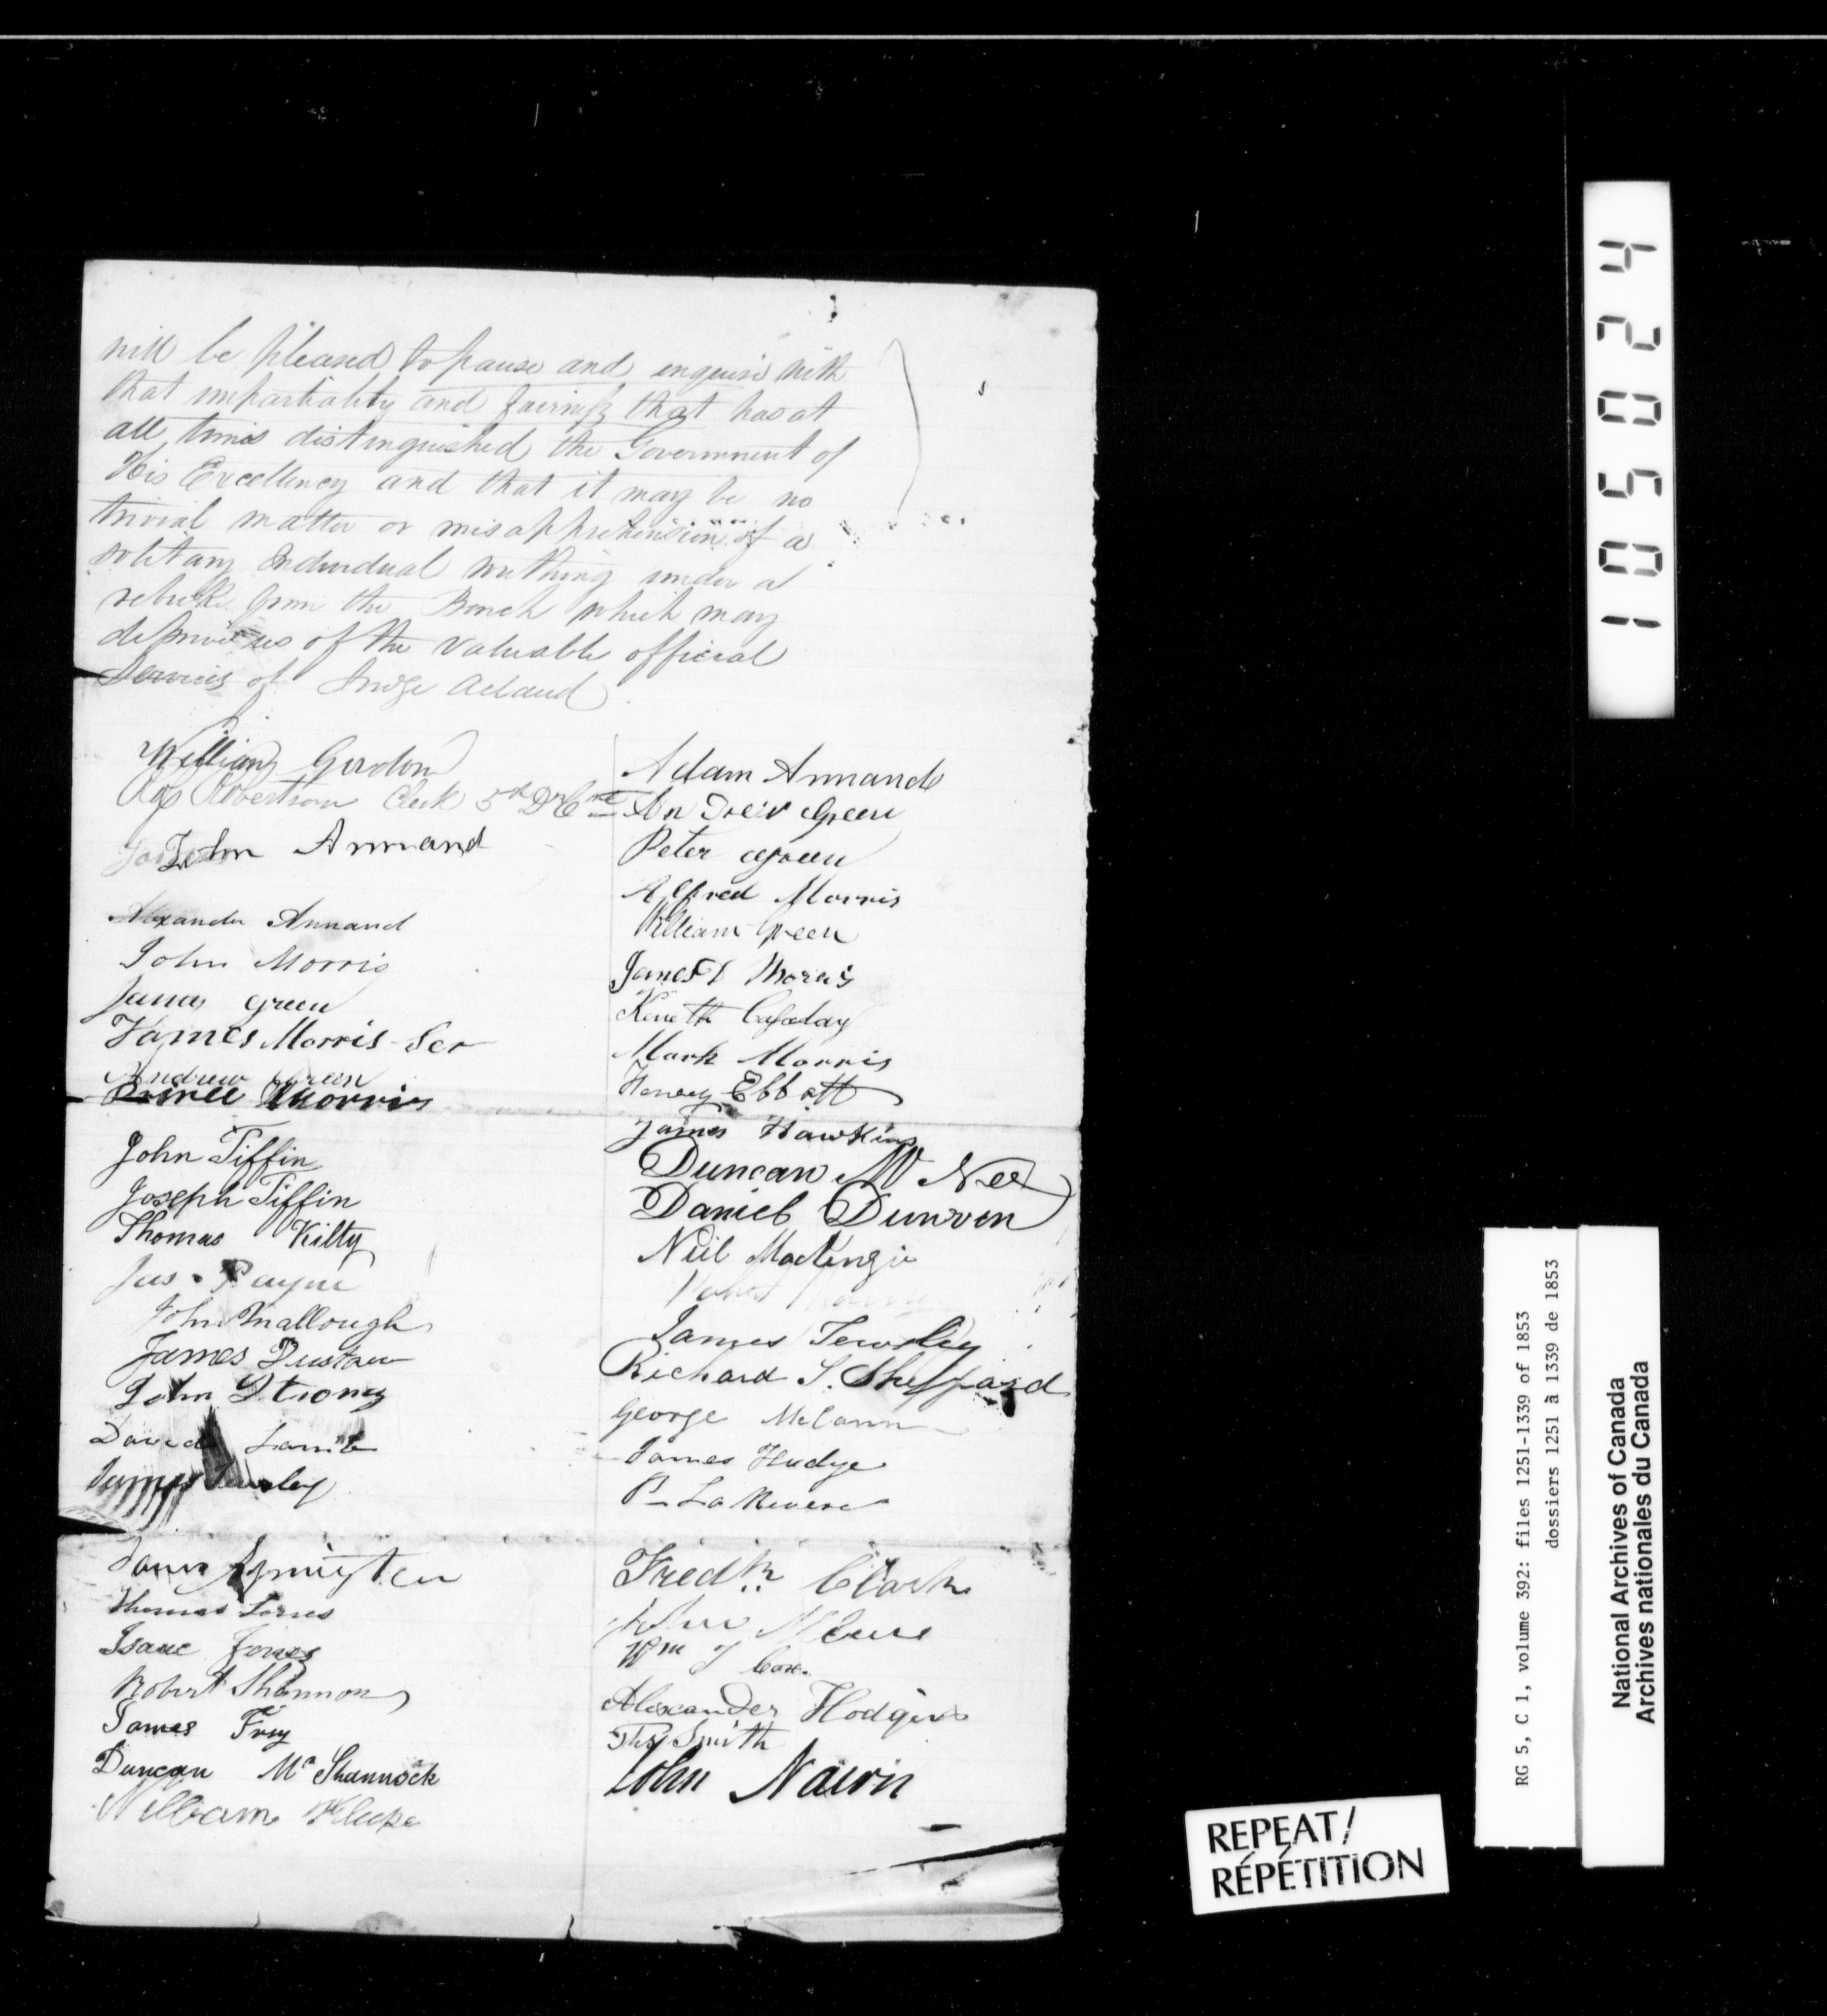 will be pleased to pause and enquire with
that impartiality and fairness that has at
all times distinguished the Government of
His Excellency and that it may be no
trivial matter or misapprehension of a
solitary Individual writhing under a
rebuke from the Bench which may
deprive us of the valuable official
Services of Judge Acland
William Gordon
Robertson Clerk 5th
John Annand
Alexander Annand
John Morris
James Green
James Morris Ser
Andrew Green
Prince Morris
John Tiffin
Joseph Tiffin
Thomas Kilty
Jas. Payne
John Mallough
James Dustan
John Strong
David Lamb
James Tewsley
Thomas
Isaac Jones
Robert Shannon
James Frey
Duncan Mc Shannock
William
Adam Annand
Andrew Green
Peter Green
Alfred Morris
William Green
James D Morris
Kenneth
Mark Morris
Henry Ebbott
James Hawkins
Duncan Mc Nee
Daniel
Neil MacKenzie
James Tewsley
Richard S. Sheppard
George McCann
James Hudge
P
Fredk Clark
John
Wm J Cox.
Alexander Hodgins
Thos Smith
John Nairn
105024
RG 5, C 1, volume 392: files 1251-1339 of 1853
dossiers 1251 à 1339 de 1853
National Archives of Canada
Archives nationales du Canada
REPEAT/
RÉPÉTITION